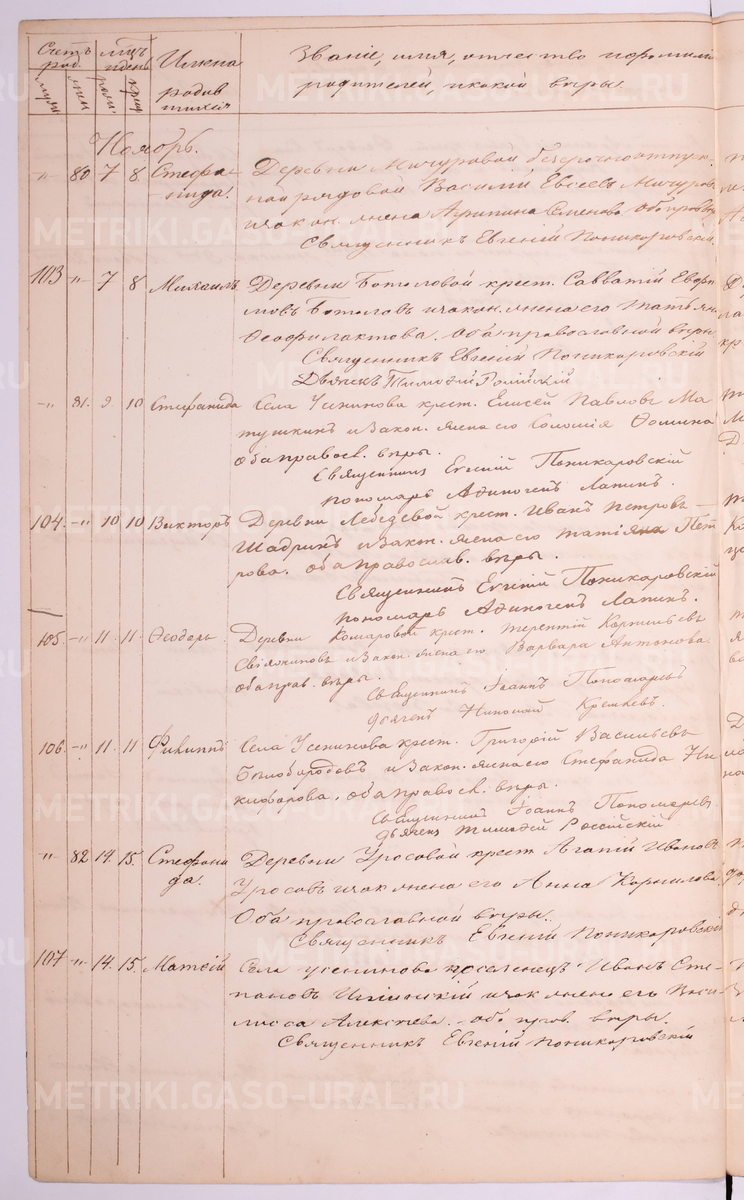 Счетъ род. мѣсяцъ и день Имена родившихся Званіе, имя, отчество и фамилія
родителей, и какой вѣры.
муж. жен. рожд. крещ.
Ноябрь.
„ 80 7 8. Стефа- Деревни Мичуровой безсрочноотпуск-
нида. ной рядовой Василій Евсеевъ Мичуровъ
и зак он. жена Агрипина Семенова оба прав. вѣр.
Священникъ Евгеній Поникаровскій.
103 „ 7 8 Михаилъ Деревни Ботоловой крест. Савватій Евфи-
мовъ Ботоловъ и закон. жена его Татьяна
Феофилактова. Оба православной вѣры
Священникъ Евгеній Поникаровскій
Дьячекъ Тимофей
„ 81. 9 10 Стефанида Села Усенинова крест. Елисей Павловъ Ма-
тушкинъ и закон. жена его Фомина
оба правосл. вѣры.
Священникъ Евгеній Поникаровскій
пономарь Лапинъ.
104. „ 10 10 Викторъ Деревни Лебедевой крест. Иванъ Петровъ
Шадринъ и закон. жена его Татіяна Пет-
рова. оба православ. вѣры.
Священникъ Евгеній Поникаровскій
пономарь Лапинъ.
105. „ 11. 11. Феодоръ. Деревни Комаровой крест. Терентій Корнильевъ
и закон. жена его Варвара Антонова.
оба прав. вѣры.
Священникъ Іоаннъ Пономаревъ
дьячекъ Николай
106. „ 11. 11 Филиппъ Села Усенинова крест. Григорій Васильевъ
Бѣлобородовъ и закон. жена его Стефанида Ни-
кифорова. оба правосл. вѣры.
Священникъ Іоаннъ Пономаревъ.
дьячекъ Тимофей
„ 82 14. 15. Стефани Деревни Уросовой крест Агапій Ивановъ
да. Уросовъ и зак жена его Анна Корнилова
Оба православной вѣры.
Священникъ Евгеній Поникаровскій
107 „ 14. 15. Матвій Села Усенинова поселенецъ Иванъ Сте-
пановъ и зак жена его Васи-
лисса Алексѣева. оба прав. вѣры.
Священникъ Евгеній Поникаровскій
METRIKI.GASO-URAL.RU